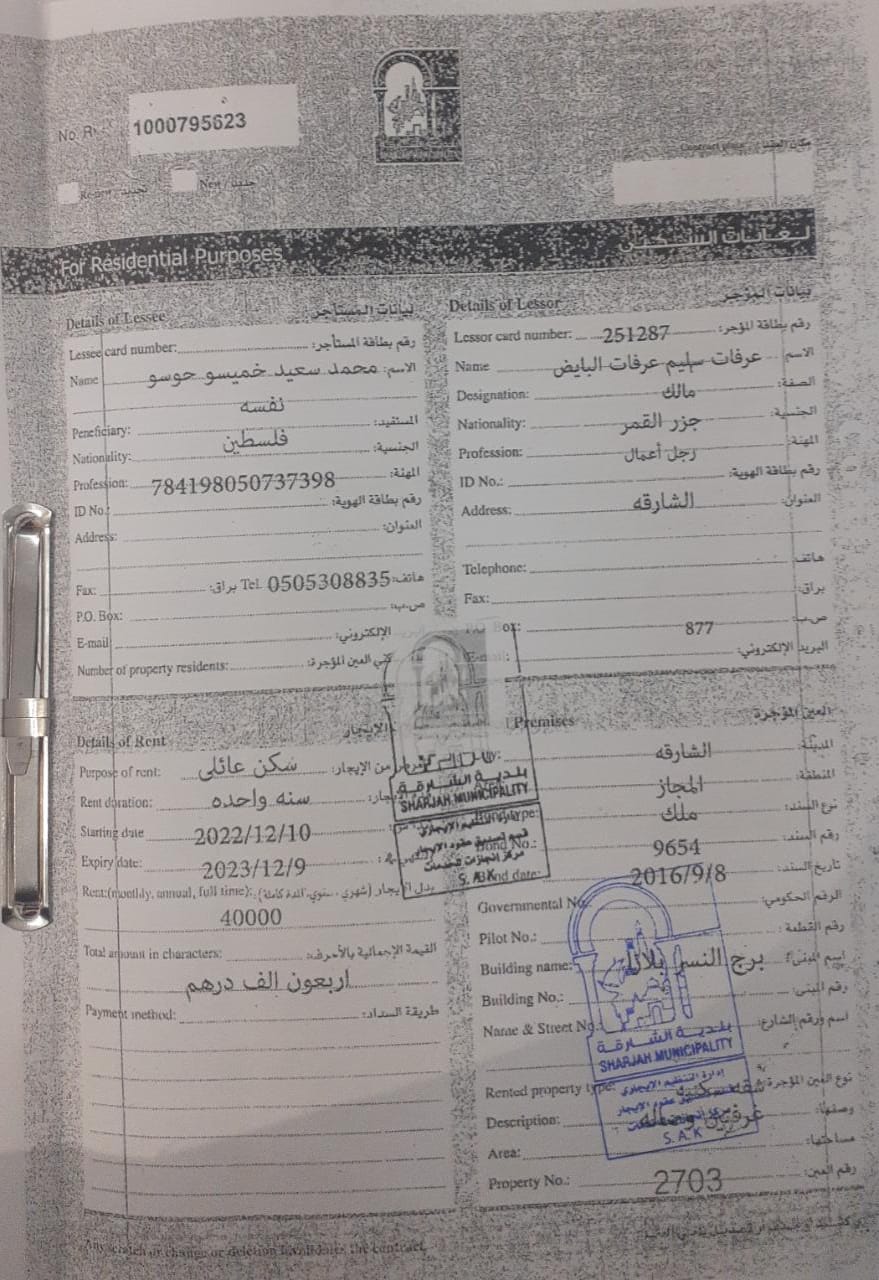 No. R
1000795623
Renew / تجديد
New / جديد
Contract place / مكان العقد
For Residential Purposes
لغايات السكن
Details of Lessee بيانات المستأجر
Lessee card number: رقم بطاقة المستأجر:
Name الاسم: محمد سعيد خميسو حوسو
نفسه
Peneficiary: المستفيد:
Nationality: فلسطين الجنسية:
Profession: 784198050737398 المهنة:
ID No.: رقم بطاقة الهوية:
Address: العنوان:
Fax: براق: Tel. 0505308835 هاتف:
P.O. Box: ص.ب:
E-mail الإلكتروني:
Number of property residents: العين المؤجرة:
Details of Lessor بيانات المؤجر
Lessor card number: 251287 رقم بطاقة المؤجر:
Name عرفات سليم عرفات البايض الاسم
Designation: مالك الصفة:
Nationality: جزر القمر الجنسية:
Profession: رجل أعمال المهنة:
ID No.: رقم بطاقة الهوية:
Address: الشارقه العنوان:
Telephone: هاتف:
Fax: براق:
P.O. Box: 877 ص.ب:
E-mail: البريد الإلكتروني:
Details of Rent الإيجار
Purpose of rent: سكن عائلى من الإيجار:
Rent doration: سنه واحده
Starting date 2022/12/10
Expiry date: 2023/12/9
Rent:(monthly, annual, full time): بدل الإيجار (شهري، سنوي، المدة كاملة):
40000
Total amount in characters: القيمة الإجمالية بالأحرف:
اربعون الف درهم
Payment method: طريقة السداد:
Premises العين المؤجرة
الشارقه المدينة:
المجاز المنطقة:
type: ملك نوع السند:
Bond No.: 9654 رقم السند:
Bond date: 2016/9/8 تاريخ السند:
Governmental No. الرقم الحكومي:
Pilot No.: رقم القطعة:
Building name: برج النسر بلازا اسم المبنى:
Building No.: رقم المبنى:
Name & Street No.: اسم ورقم الشارع:
Rented property type: نوع العين المؤجرة:
Description: وصفها:
Area: مساحتها:
Property No.: 2703 رقم العين:
بلدية الشارقة
SHARJAH MUNICIPALITY
قسم تصديق عقود الإيجار
مركز انجازات للخدمات
S. A.K
بلدية الشارقة
SHARJAH MUNICIPALITY
إدارة التنظيم الإيجاري
S. A.K
Any scratch or change or deletion invalidates the contract.